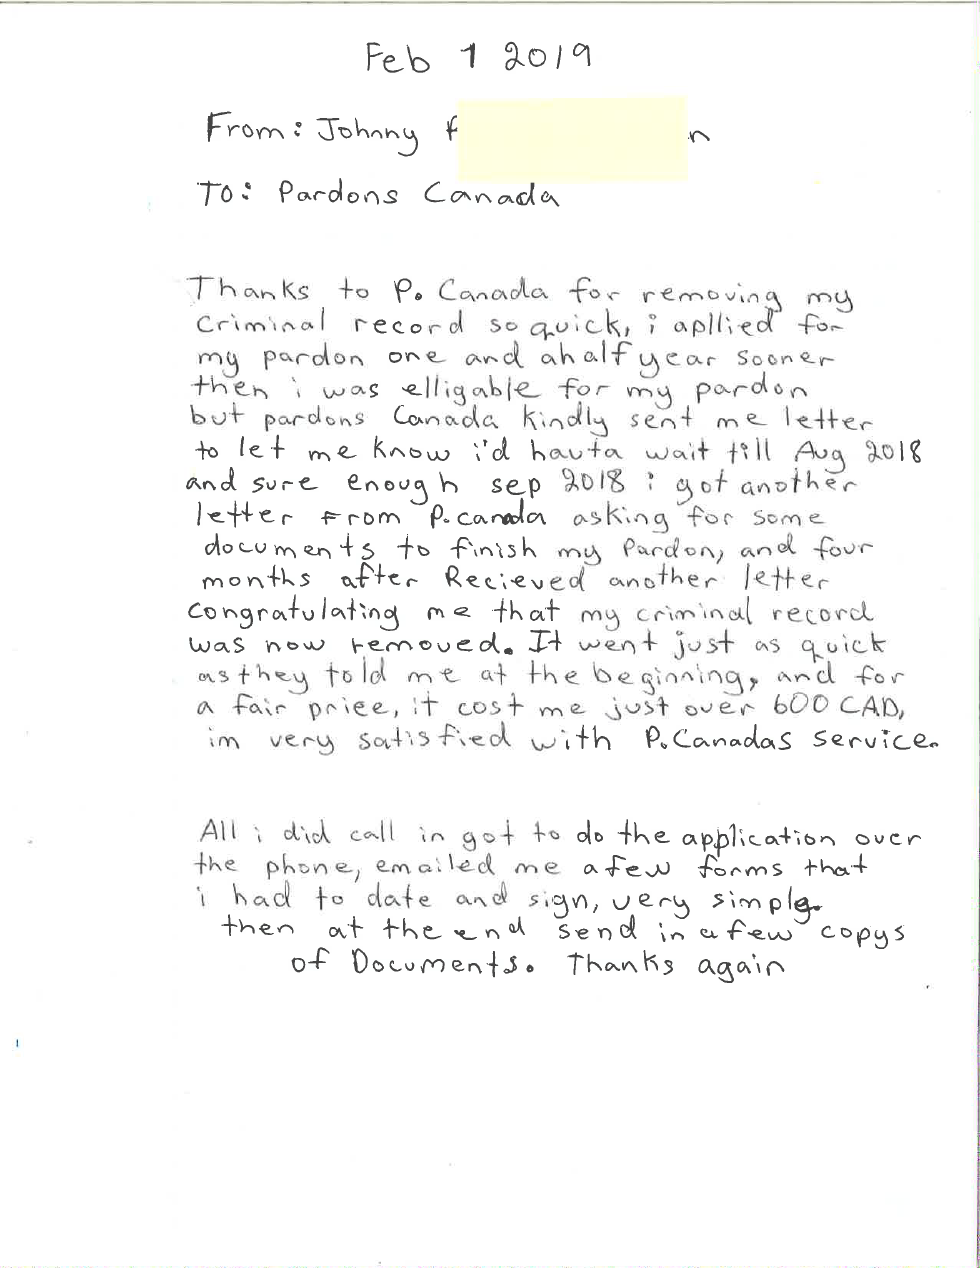 Feb 1 2019
From: Johnny F n
To: Pardons Canada
Thanks to P. Canada for removing my
criminal record so quick, i apllied for
my pardon one and ahalf year sooner
then i was elligable for my pardon
but pardons Canada kindly sent me letter
to let me know i'd havta wait till Aug 2018
and sure enough sep 2018 i got another
letter From P.canada asking for some
documents to finish my Pardon, and four
months after Recieved another letter
congratulating me that my criminal record
was now removed. It went just as quick
as they told me at the beginning, and for
a fair price, it cost me just over 600 CAD,
im very satisfied with P.Canadas service.
All i did call in got to do the application over
the phone, emailed me a few forms that
i had to date and sign, very simple.
then at the end send in a few copys
of Documents. Thanks again